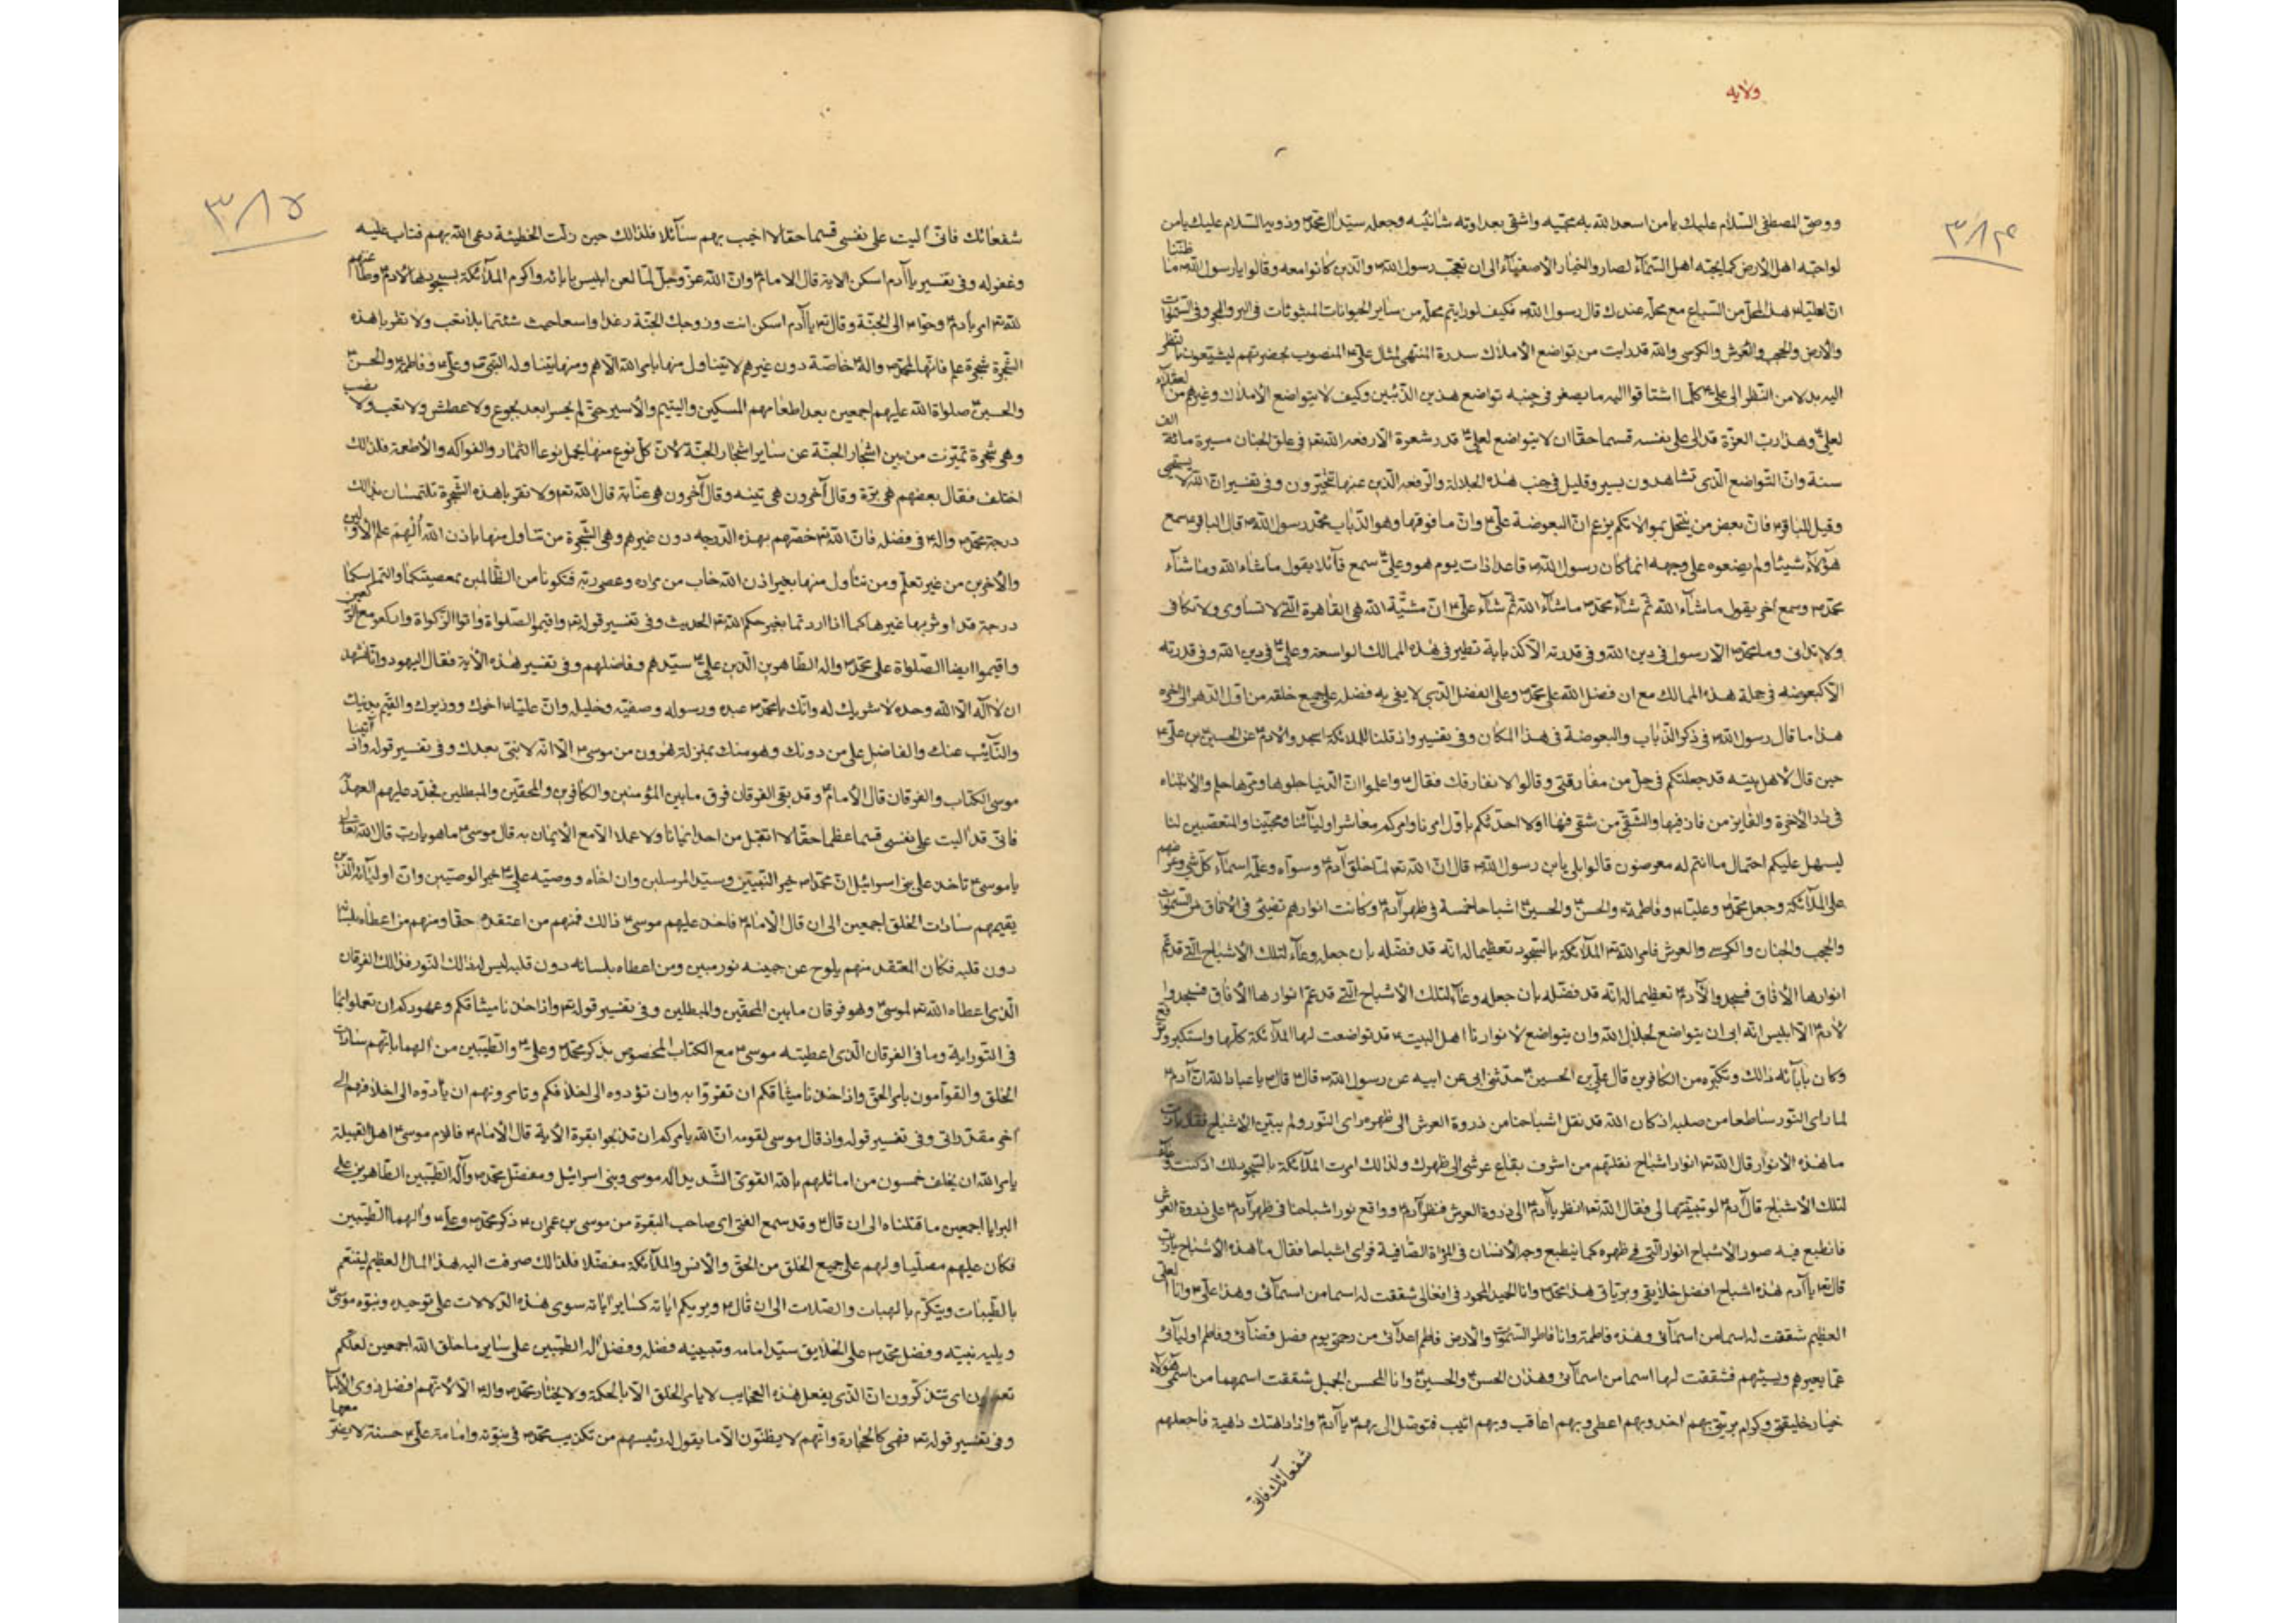 ولایه
۳۸۴
ووصیّ المصطفی السّلام علیك یا من اسعد الله به محبّیه واشقی بعداوته شانئیه وجعله سیّد آل محمّد وذویه السلام علیك یا من
لو احبّه اهل الأرض كما یحبّه اهل السّمآء لصاروا لخیار الأصفیآء الی ان تعجّب رسول الله والذین كانوا معه وقالوا یا رسول الله ما ظننّا
انّ لعلیّ هذا المحلّ من السّباع مع محلّه عندك قال رسول الله فكیف لو رایتم محلّه من سایر الحیوانات المبثوثات فی البرّ والبحر وفی السّموات
والارض والحجب والعرش والكرسی والله قد رایت من تواضع الأملاك سدرة المنتهی لمثال علیّ المنصوب بحضرتهم لیشیعون بالنظر
الیه بدلا من النّظر الی علی كلّما اشتاقوا الیه ما یصغر فی جنبه تواضع هذین الذّئبین وكیف لا یتواضع الأملاك وغیرهم من العقلاء
لعلیّ وهذا ربّ العزّة قد الی علی نفسه قسما حقّا ان لا یتواضع لعلیّ قدر شعرة الّا رفعه الله فی علوّ الجنان مسیرة مائة الف
سنة وانّ التّواضع الّذی تشاهدون یسیر وقلیل فی جنب هذه الجلالة والرفعه الّذین عنها تخبرون وفی تفسیر انّ الله لا یستحیی
وقیل للباقر فانّ بعض من ینتحل بموالاتكم یزعم انّ البعوضة علیّ وانّ ما فوقها وهو الذّباب محمّد رسول الله قال الباقر سمع
هؤلآء شیئا ولم یضعوه علی وجهه انما كان رسول الله قاعدا ذات یوم هو وعلیّ سمع قآئلا یقول ماشاء الله وما شآء
محمّد وسمع آخر یقول ما شآء الله ثم شآء محمّد ما شآء الله ثم شآء علیّ انّ مشیّة الله هی القاهرة الّتی لا تساوی ولا تكافی
ولا تدانی وما محمّد الّا رسول فی دین الله وفی قدرته الّا كذبابة تطیر فی هذه الممالك الواسعة وعلیّ فی دین الله وفی قدرته
الّا كبعوضه فی جملة هذه الممالك مع ان فضل الله علی محمّد وعلی الفضل الذی لا یفی به فضله علی جمیع خلقه من اوّل الدهر الی اخره
هذا ما قال رسول الله فی ذكر الذّباب والبعوضة فی هذا المكان وفی تفسیر واذ قلنا للملائكة اسجدوا لادم عن الحسین بن علیّ
حین قال لاهل بیته قد جعلتكم فی حلّ من مفارقتی وقالوا لا نفارقك فقال واعلموا انّ الدّنیا حلوها ومرّها حلم والانتباه
فی الأخرة والفایز من فاز فیها والشّقیّ من شقی فیها اولا احدّثكم باوّل امرنا وامركم معاشر اولیآئنا ومحبّینا والمتعصّبین لنا
لیسهل علیكم احتمال ما انتم له معرضون قالوا بلی یابن رسول الله قال انّ الله لمّا خلق آدم وسوّاه وعلّمه اسمآء كلّ شیئ وعرضهم
علی الملآئكة وجعل محمّدا وعلیّا وفاطمة والحسن والحسین اشباحا خمسة فی ظهر آدم وكانت انوارهم تضیئ فی الافاق من السّموات
والحجب والجنان والكرسی والعرش فامر الله الملآئكة بالسّجود تعظیما له انّه قد فضّله بان جعله وعآء لتلك الأشباح الّتی قد عمّ
انوارها الأفاق فسجدوا لآدم تعظیما له انّه قد فضّله بان جعله وعآء لتلك الأشباح الّتی قد عمّ انوارها الأفاق فسجدوا
لادم الّا ابلیس انّه ابی ان یتواضع لجلال الله وان یتواضع لانوارنا اهل البیت قد تواضعت لها الملآئكة كلّها واستكبر وترفّع
وكان بابآئه ذالك وتكبّره من الكافرین قال علیّ بن الحسین حدّثنی ابی عن ابیه عن رسول الله قال قال یا عباد الله انّ آدم
لما رای النّور ساطعا من صلبه اذ كان الله قد نقل اشباحنا من ذروة العرش الی ظهره رای النّور ولم یبیّن الأشباح فقال یا ربّ
ما هذه الأنوار قال الله انوار اشباح نقلتهم من اشرف بقاع عرشی الی ظهرك ولذالك امرت الملآئكة بالسّجود لك اذ كنت وعآء
لتلك الأشباح قال آدم لو تبیّنتها لی فقال الله انظر یا آدم الی ذروة العرش فنظر آدم وواقع نور اشباحنا فی ظهر آدم علی ذروة العرش
فانطبع فیه صور الأشباح انوار التی فی ظهره كما ینطبع وجه الأنسان فی المرآة الصّافیة فرای اشباحنا فقال ما هذه الأشباح یا ربّ
قال یا آدم هذه اشباح افضل خلایقی وبریّاتی هذا محمّد وانا الحمید المحمود فی افعالی شققت له اسما من اسمآئی وهذا علیّ وانا العلی
العظیم شققت له اسما من اسمآئی وهذه فاطمة وانا فاطر السّموات والارض فاطم اعدآئی من رحمتی یوم فصل قضآئی وفاطم اولیآئی
عمّا یعیرهم ویسیئهم فشققت لها اسما من اسمآئی وهذان الحسن والحسین وانا المحسن المجمل شققت اسمهما من اسمی هؤلآء
خیار خلیقتی وكرام بریّتی بهم اخذ وبهم اعطی وبهم اعاقب وبهم اثیب فتوسّل الی بهم یا آدم واذا دهتك داهیة فاجعلهم
شفعآئك فانّی
۳۸۵
شفعائك فانّی الیت علی نفسی قسما حقا لا اخیب بهم سآئلا فلذالك حین زلّت الخطیئة دعی الله بهم فتاب علیه
وغفر له وفی تفسیر یا آدم اسكن الایة قال الامام وانّ الله عزّ وجلّ لمّا لعن ابلیس بابائه واكرم الملآئكة بسجودها لادم وطاعتهم
لله امر بآدم وحوّا الی الجنّة وقال یا آدم اسكن انت وزوجك الجنّة رغدا واسعا حیث شئتما بلا تعب ولا تقربا هذه
الشّجرة شجرة علم فانّها لمحمّد واله خاصّة دون غیرهم لا یتناول منها بامر الله الّا هم ومنها یتناوله النّبی وعلیّ وفاطمة والحسن
والحسین صلواة الله علیهم اجمعین بعد اطعامهم المسكین والیتیم والأسیر حتّی لم یحسّوا بعد بجوع ولا عطش ولا تعب ولا نصب
وهی شجرة تمیّزت من بین اشجار الجنّة عن سایر اشجار الجنّة لانّ كلّ نوع منها یحمل نوعا الثمار والفواكه والأطعمة فلذالك
اختلف فقال بعضهم هی برّة وقال آخرون هی تینه وقال آخرون هی عنّابة قال الله ولا تقربا هذه الشّجرة تلتمسان بذالك
درجة محمّد واله فی فضلهم فانّ الله خصّهم بهذه الدّرجه دون غیرهم وهی الشّجرة من تناول منها باذن الله اُلهِمَ علم الأوّلین
والأخرین من غیر تعلّم ومن تناول منها بغیر اذن الله خاب من مراده وعصی ربّه فتكونا من الظّالمین بمعصیتكما والتماسكما
درجة قد اوثر بها غیرها كما اذا اردتما بغیر حكم الله الحدیث وفی تفسیر قوله واقیموا الصّلواة واتوا الزّكواة واركعوا مع الرّاكعین
واقیموا ایضا الصّلواة علی محمّد واله الطّاهرین الّذین علیّ سیّدهم وفاضلهم وفی تفسیر هذه الأیة فقال الیهود وانّا نشهد
ان لا اله الّا الله وحده لا شریك له وانّك یا محمّد عبده ورسوله وصفیّه وخلیله وانّ علیّا اخوك ووزیرك والقیّم بدینك
والنّآئب عنك والفاضل علی من دونك وهو منك بمنزلة هرون من موسی الّا انّه لا نبیّ بعدك وفی تفسیر قوله واذ آتینا
موسی الكتاب والفرقان قال الأمام وقد بقی الفرقان فوق ما بین المؤمنین والكافرین والمحقّین والمبطلین فجدّد علیهم العهد
فانّی قد آلیت علی نفسی قسما عظما حقّا لا اتقبل من احد ایمانا ولا عملا الّا مع الأیمان به قال موسی ما هو یا ربّ قال الله تعالی
یا موسی تاخذ علی بنی اسرائیل انّ محمّدا خیر النّبیّین وسیّد المرسلین وان اخاه ووصیّه علی خیر الوصیّین وانّ اولیآئه الّذین
یقیمهم سادات الخلق اجمعین الی ان قال الأمام فاخذ علیهم موسی ذالك فمنهم من اعتقده حقّا ومنهم من اعطاه بلسانه
دون قلبه فكان المعتقد منهم یلوح عن جبینه نور مبین ومن اعطاه بلسانه دون قلبه لیس له ذالك النّور فذالك الفرقان
الّذی اعطاه الله لموسی وهو فرقان ما بین المحقّین والمبطلین وفی تفسیر قوله واذ اخذنا میثاقكم وعهودكم ان تعملوا بما
فی التّورایة وما فی الفرقان الّذی اعطیته موسی مع الكتاب المخصوص بذكر محمّد وعلی والطّیبین من الهما بانّهم سادات
الخلق والقوّامون بامر الحقّ واذ اخذنا میثاقكم ان تقرّوا به وان تؤدوه الی اخلافكم وتامرونهم ان یؤدّوه الی اخلافهم الی
آخر مقدّراتی وفی تفسیر قوله واذ قال موسی لقومه انّ الله یامركم ان تذبحوا بقرة الأیة قال الأمام فالزم موسی اهل القبیلة
بامر الله ان یحلف خمسون من اماثلهم بالله القویّ الشّدید اله موسی وبنی اسرائیل ومفضّل محمّد وآله الطّیّبین الطّاهرین علی
البرایا اجمعین ما قتلناه الی ان قال وقد سمع الفتی ای صاحب البقرة من موسی بن عمران ذكر محمّد وعلی وآلهما الطّیّبین
فكان علیهم مصلّیا ولهم علی جمیع الخلق من الجنّ والأنس والملآئكة مفضّلا فلذالك صرفت الیه هذا المال العظیم لیتنعّم
بالطّیّبات ویتكرّم بالهبات والصّلات الی ان قال ویریكم ایاته كسایر ایاته سوی هذه الدّلالات علی توحیده ونبوّه موسی
ویلیه نبیّه وفضل محمّد علی الخلایق سیّد امامه وتبیینه فضله وفضل اله الطّیّبین علی سایر ما خلق الله اجمعین لعلّكم
ای تتذكّرون انّ الّذی یفعل هذه العجایب لا یامر الخلق الّا بالحكمة ولا یختار محمّد واله الّا لانّهم افضل ذوی الألباب
وفی تفسیر قوله فهی كالحجارة وانّهم لا یظنّون الّا ما یقول لهم رئیسهم من تكذیب محمّد فی نبوّته وامامة علیّ حسنة لا یضرّ معها